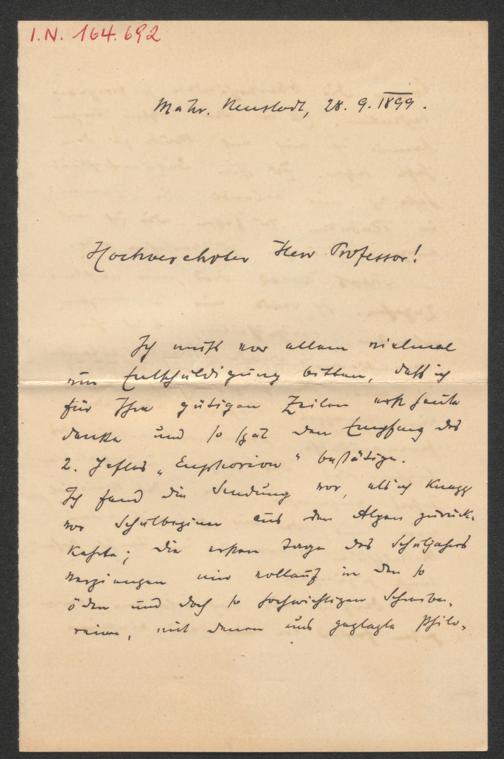 I.N. 164.692
Mähr. Neustadt, 28. 9. 1899.
Hochverehrter Herr Professor!
Ich muß vor allem vielmal
um Entschuldigung bitten, daß ich
für Ihre gütigen Zeilen erst heute
danke und so spät den Empfang des
2. Heftes „Euphorion" bestätige.
Ich fand die Sendung vor, als ich knapp
vor Schulbeginn aus den Alpen zurück-
kehrte; die ersten Tage des Schuljahres
vergingen mir vollauf in den so
öden und doch so hochwichtigen Schreibe-
reien, mit denen uns geplagte Philo-